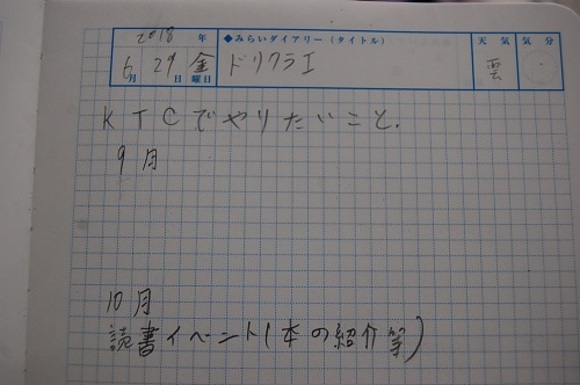 2018 年 ◆みらいダイアリー(タイトル) 天気 気分
6月 29日 金曜日 ドリクラI 雲
KTCでやりたいこと.
9月
10月
読書イベント(本の紹介等)